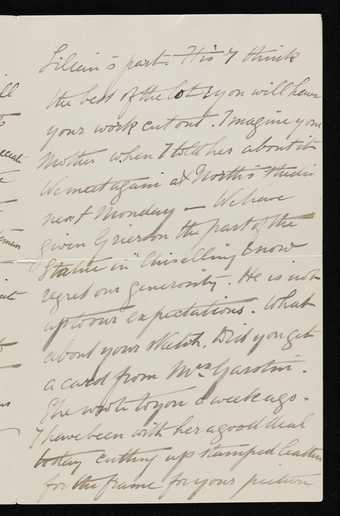 Lilian's part. His I think
the best of the lot & you will have
your work cut out. I imagine your
Mother when I told her about it.
We meet again at North's Studio
next Monday — We have
given Grierson the part of the
Statue in "Chiselling & now
regret our generosity. He is not
up to our expectations. What
about your sketch. Did you get
a card from Mrs
She wrote to you a week ago.
I have been with her a good deal
today cutting up stamped leather
for the frame for your picture